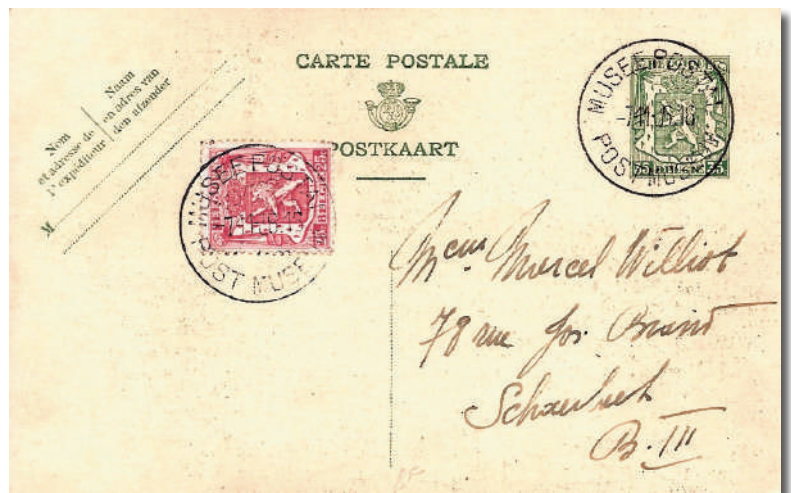 CARTE POSTALE
POSTKAART
Nom
et adresse de
l'expéditeur
Naam
en adres van
den afzender
M
MUSEE POSTAL
POST MUSEUM
35 35
MUSEE POS
POST MUSE
25 25
Mᵉᵘʳ Marcel Williot
78 rue Jos. Brand
Schaerbeek
B. III